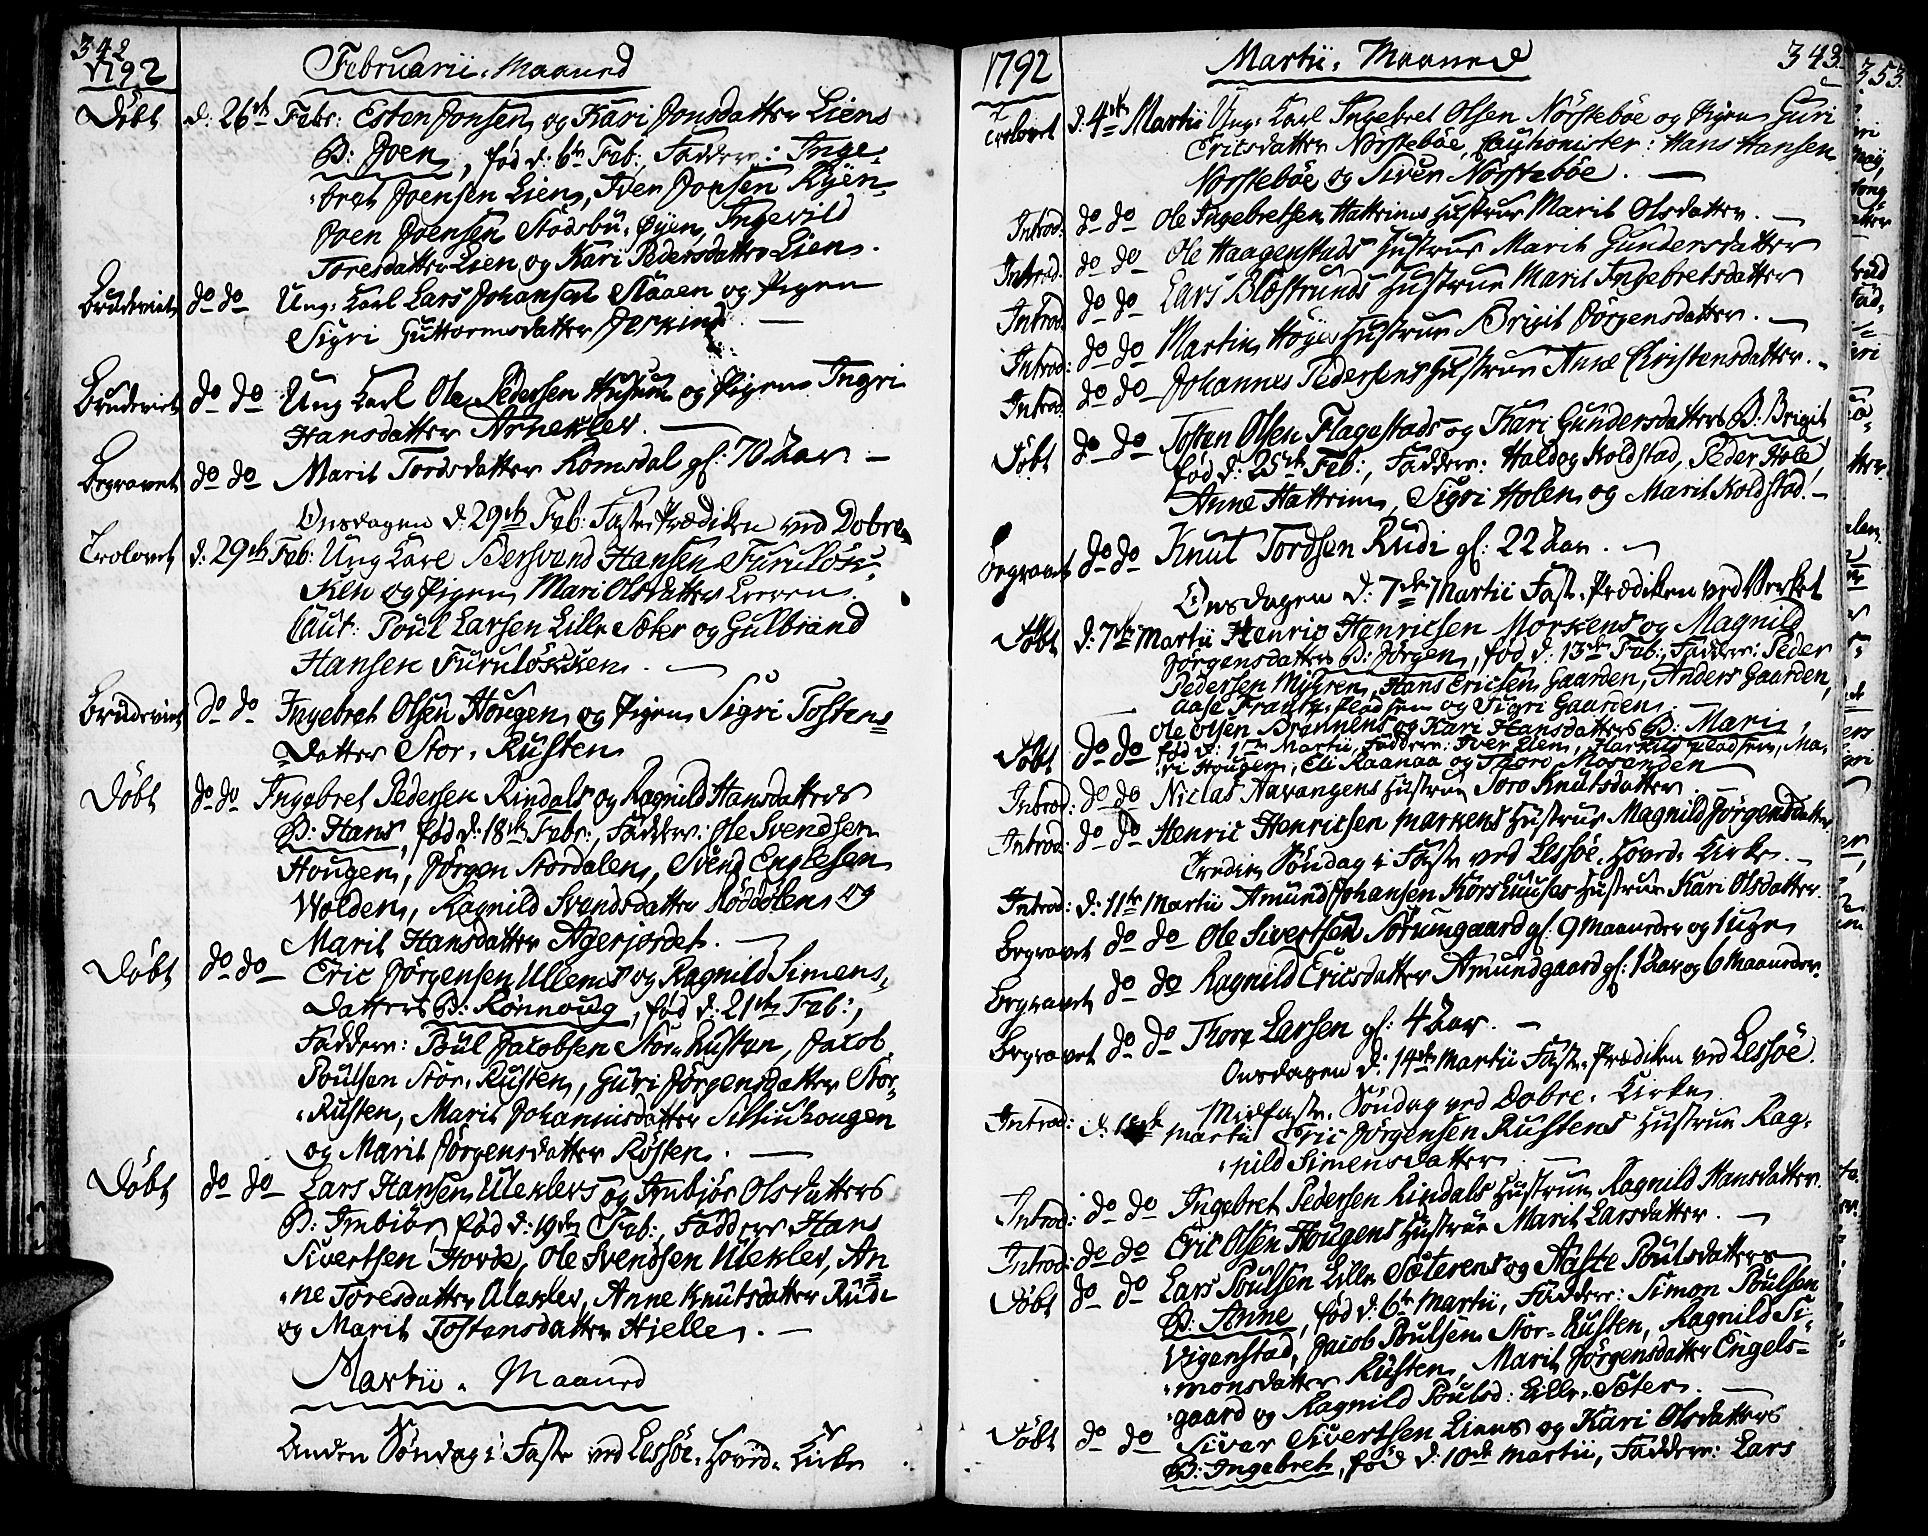 342
1792
Februarii Maaned
Døbt d: 26de Febr: Eston Jonsen og Kari Jonsdatter Liens
B: Joen, fød d: 6te Feb: Faddere: Inge-
bret Joensen Lien, Iver Jonsen Kyen-
Joen Joensen Stadsbu-Øyen, Ingevild
Toresdatter Lien og Kari Pedersdatter Lien.
Brudeviet do do Ung: Karl Lars Johansen Staaen og Pigen
Sigri Guttormsdatter Jerkind
Brudeviet do do Ung Karl Ole Pedersen Husum og Pigen Ingri
Hansdatter Arneklev.
Begravet do do Marit Tordsdatter Romsdal gl: 70 Aar. -
Onsdagen d: 29de Feb: Faste Prædiken ved Dobre
Trolovet d: 29de Feb: Ung Karl Pedersvend Hansen Furuløk-
ken og Pigen Mari Olsdatter
Caut: Poul Larsen Lille Sæter og Gulbrand
Hansen Furuløkken.
Brudeviet do do Ingebret Olsen Hougen og Pigen Sigri Tostens
Datter Stor-Rusten
Døbt do do Ingebret Pedersen Rindals og Ragnild Hansdatters
B: Hans, fød d: 18de Febr:, Faddere: Ole Svendsen
Hougen, Jørgen Stordalen, Svend Englesen
Wolden, Ragnild Svendsdatter Røddølen og
Marit Hansdatter Agerjordet.
Døbt do do Eric Jørgensen Ullens og Ragnild Simens-
datters B: Rønnoug, fød d: 21de Feb:,
Faddere: Poul Jacobsen Stor-Rusten, Jacob
Poulsen Stor-Rusten, Guri Jørgensdatter Stor-
Rusten, Marit Johannisdatter Silliuhougen
og Marit Jørgensdatter Røsten.
Døbt do do Lars Hansen Uleklevs og Imbjør Olsdatters
B: Imbiør, fød d: 19de Feb:, Faddere Hans
Sivertsen Hovde, Ole Svendsen Uleklev, An-
ne Toresdatter Uleklev, Anne Knutsdatter Rudi
og Marit Tostensdatter Hjelle.
Martii Maaned
Anden Søndag i Faste ved Lessøe-Hoved-Kirke
1792
Martii Maaned
343
353
Trolovet d: 4de Martii Ung: Karl Ingebret Olsen Nørstebøe og Pigen Guri
Ericsdatter Nørstebøe, Cautionister: Hans Hansen
Nørstebøe og Siver Nørstebøe.
Introd: do do Ole Ingebretsen Hattrims Hustrue Marit Olsdatter.
Introd: do do Ole Haagenstads Hustrue Marit Gundersdatter
Introd: do do Lars Blæstrunds Hustrue Marit Ingebretsdatter
Introd: do do Martin Høyes Hustrue Brigit Jørgensdatter.
Introd: do do Johannes Pedersens Hustrue Anne Christensdatter.
Døbt do do Tosten Olsen Flagestads og Kari Gundersdatters B: Brigit
fød d: 25de Feb:, Faddere: Haldog Koldstad, Peder Hole
Anne Hattrim, Sigri Holen og Marit Koldstad.
Begravet do do Knut Tordsen Rudi gl: 22 Aar.
Onsdagen d: 7de Martii Faste Prædiken ved Verket
Døbt d: 7de Martii Henric Henricsen Morkens og Magnild
Jørgensdatters B: Jørgen, fød d: 13de Feb:, Faddere: Peder
Pedersen Mygren, Hans Ericsen Gaarden, Anders Gaarden,
Aase Frantz-Pladsen og Sigri Gaarden.
Døbt do do Ole Olsen Brennens og Kari Hansdatters B: Mari
fød d: 1ste Martii, Faddere: Iver Lien, Harkild Pladsen, Ma-
ri Hougen, Eli Raanaa og Thoro Morenden
Introd: do do Niclas Aavangens Hustrue Toro Knutsdatter.
Introd: do do Henric Henricsen Markens Hustrue Magnild Jørgensdatter
Tredie Søndag i Faste ved Lessøe-Hoved-Kirke.
Introd: d: 11te Martii Amund Johansen Korshuuses Hustrue Kari Olsdatter.
Begravet do do Ole Sivertsen Sørumgaard gl: 9 Maaneder og 1 uge
Begravet do do Ragnild Ericsdatter Amundgaard gl: 1 Aar og 6 Maaneder
Begravet do do Thore Larsen gl: 4 Aar.
Onsdagen d: 14de Martii Faste Prædiken ved Lessøe.
Midfaste Søndag ved Dobre-Kirke
Introd: d: 18de Martii Eric Jørgensen Rustens Hustrue Rag-
nild Simensdatter
Introd: do do Ingebret Pedersen Rindals Hustrue Ragnild Hansdatter.
Introd: do do Eric Olsen Hougens Hustrue Marit Larsdatter.
Døbt do do Lars Poulsen Lille Sæterens og Aaste Poulsdatters
B: Anne, fød d: 6te Martii, Faddere: Simon Poulsen
Vigenstad, Jacob Poulsen Stor-Rusten, Ragnild Si-
monsdatter Rusten, Marit Jørgensdatter Engels-
gaard og Ragnild Poulsd: Lille-Sæter.
Døbt do do Siver Sivertsen Liens og Kari Olsdatters
B: Ingebret, fød d: 10de Martii, Faddere: Lars